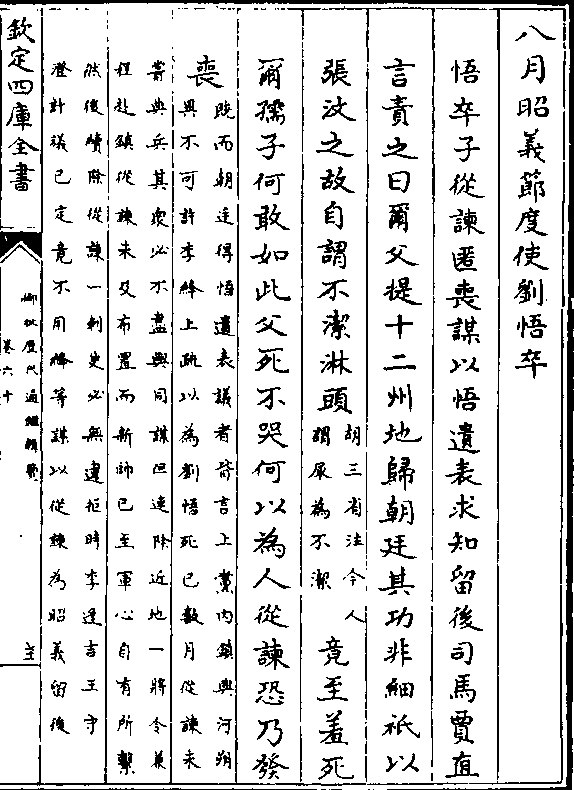 八月昭義節度使劉悟卒
悟卒子從諫匿喪謀以悟遺表求知留後司馬賈直
言責之曰爾父提十二州地歸朝廷其功非細祇以
張汶之故自謂不潔淋頭
胡三省注今人
謂尿為不潔
竟至羞死
爾孺子何敢如此父死不哭何以為人從諫恐乃發
喪
既而朝廷得悟遺表議者皆言上黨內鎮與河朔
異不可許李絳上疏以為劉悟死已數月從諫未
嘗典兵其衆必不盡與同謀但速除近地一將令兼
程赴鎮從諫未及布置而新帥已至軍心自有所繫
然後續除從諫一刺史必無違拒時李逢吉王守
澄計議已定竟不用絳等謀以從諫為昭義留後
欽定四庫全書
御批歷代通鑑輯覽
卷六十